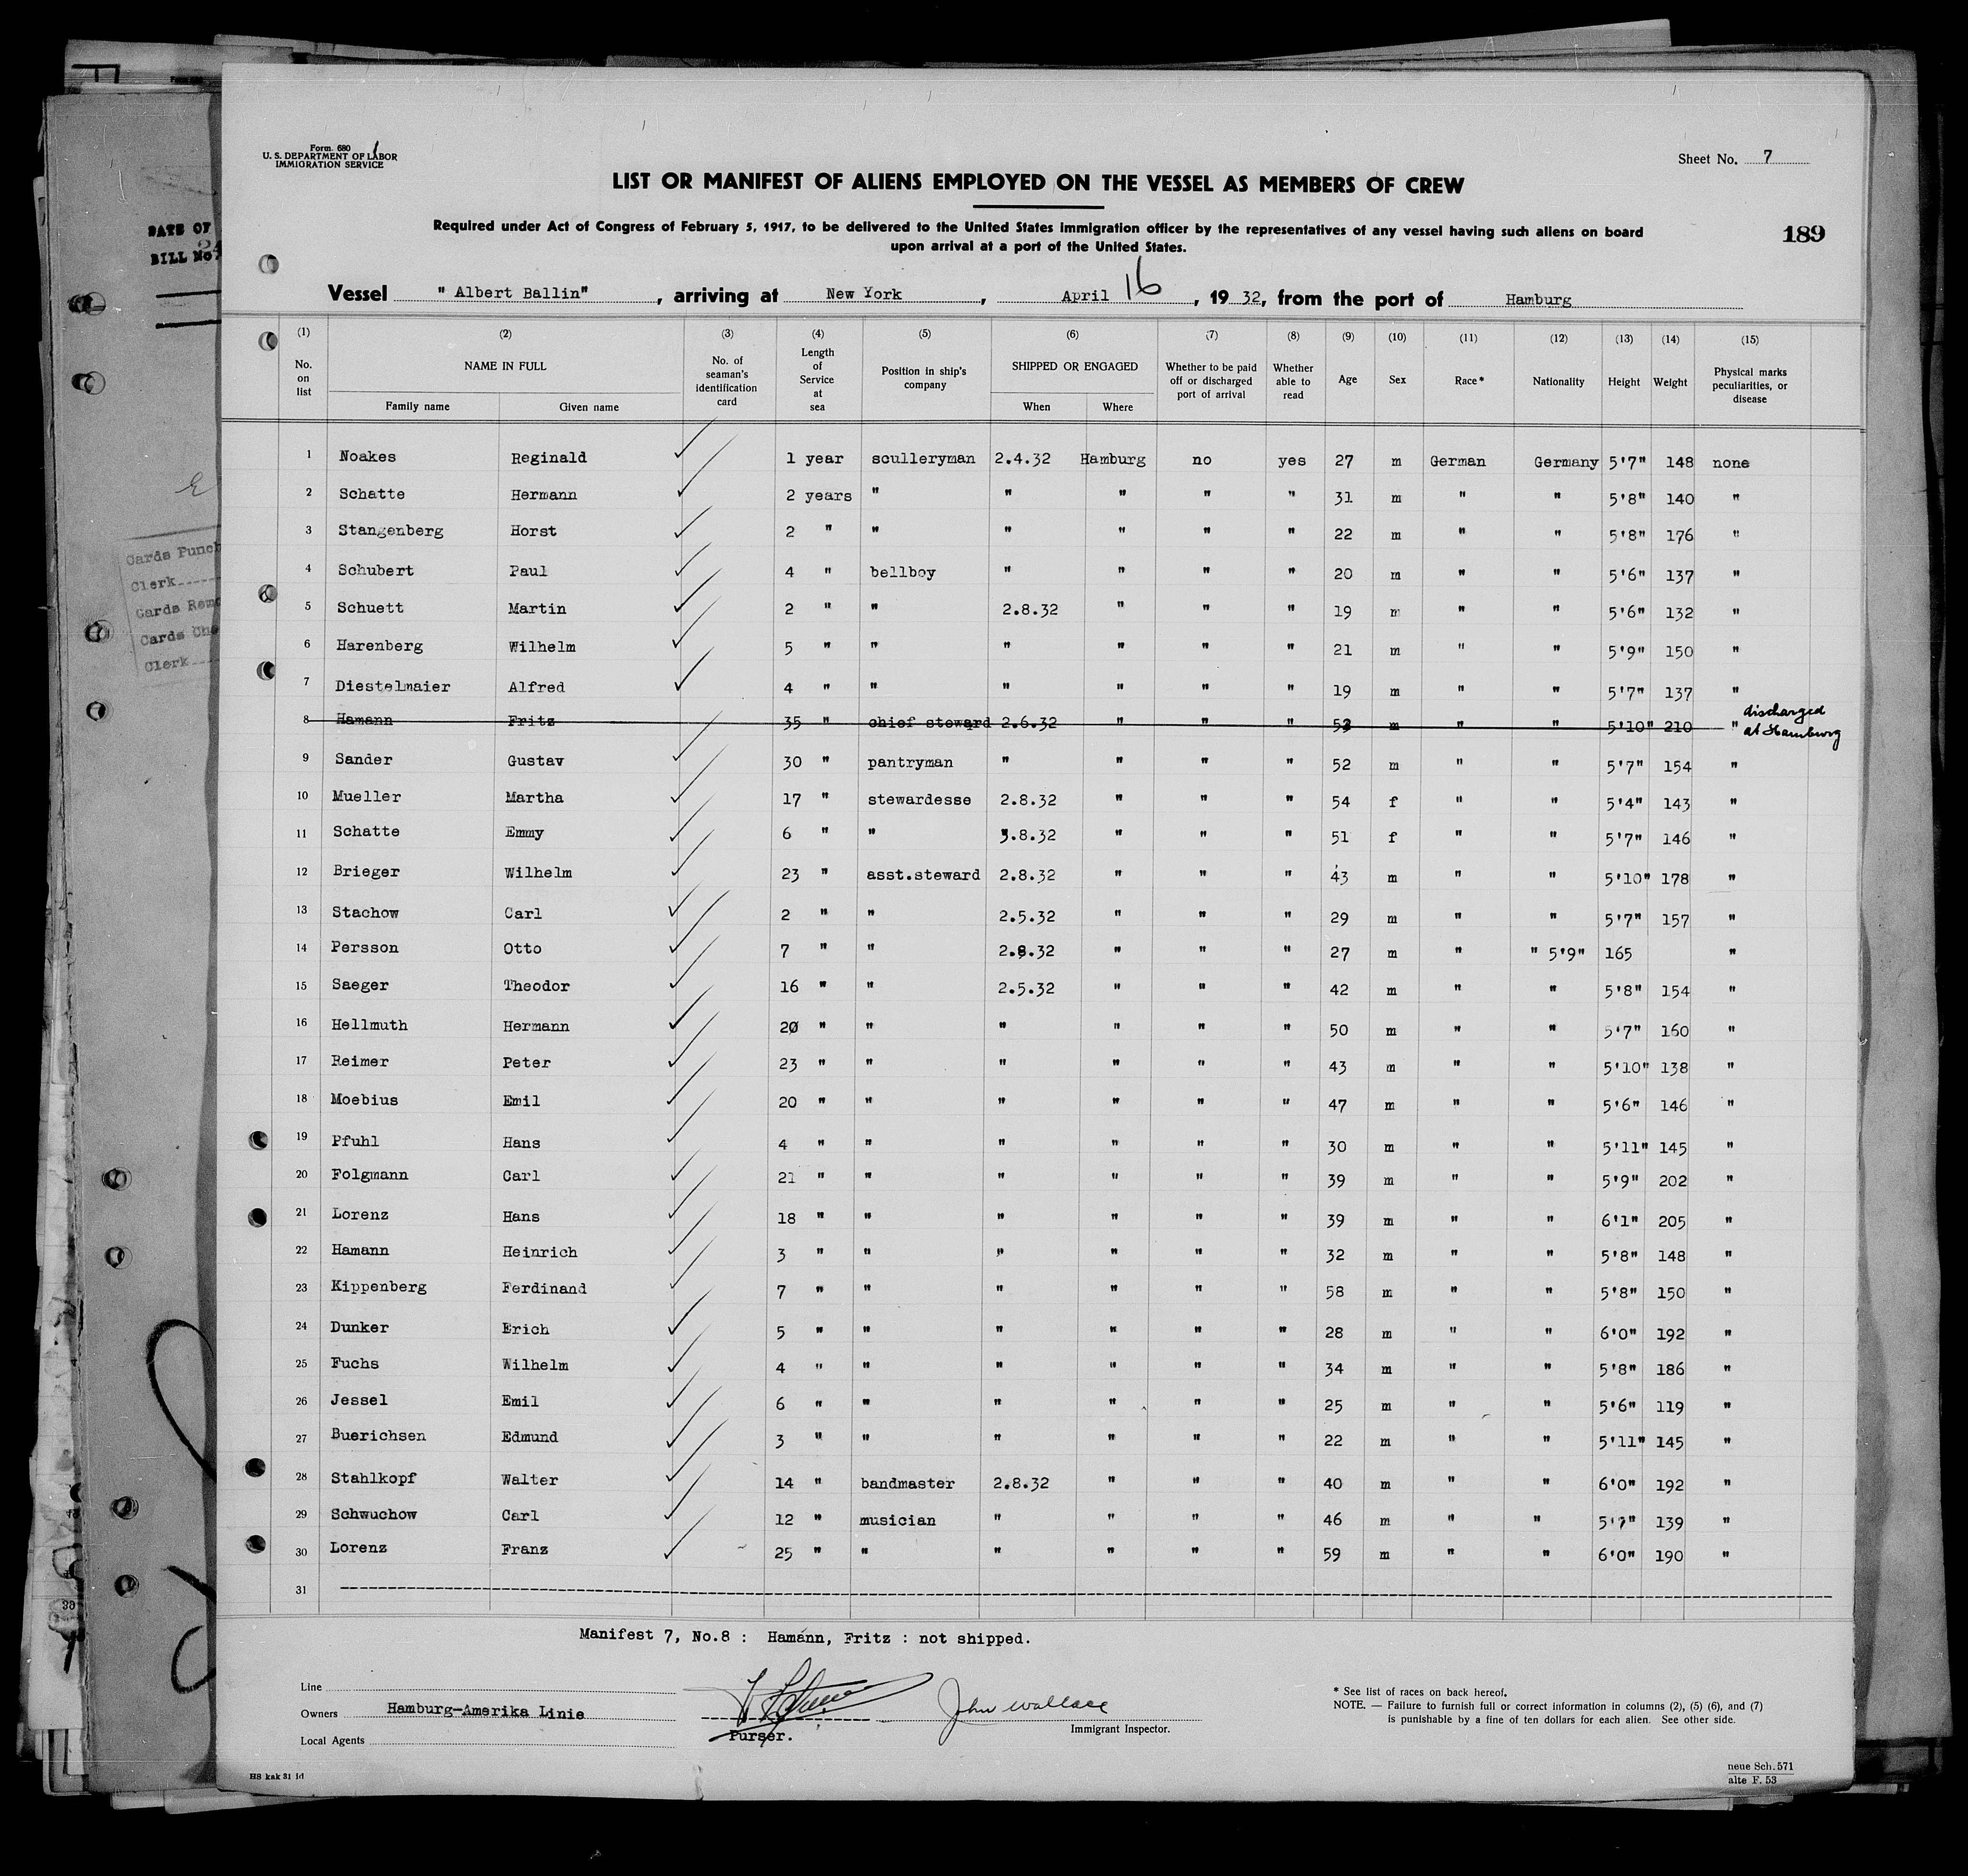 Form. 680
U. S. DEPARTMENT OF LABOR
IMMIGRATION SERVICE
Sheet No. 7
LIST OR MANIFEST OF ALIENS EMPLOYED ON THE VESSEL AS MEMBERS OF CREW
Required under Act of Congress of February 5, 1917, to be delivered to the United States immigration officer by the representatives of any vessel having such aliens on board
upon arrival at a port of the United States.
189
DATE OF
BILL No
Vessel " Albert Ballin" , arriving at New York , April 16 , 19 32, from the port of Hamburg
(1) (2) (3) (4) (5) (6) (7) (8) (9) (10) (11) (12) (13) (14) (15)
No. on list NAME IN FULL Family name Given name No. of seaman's identification card Length of Service at sea Position in ship's company SHIPPED OR ENGAGED When Where Whether to be paid off or discharged port of arrival Whether able to read Age Sex Race* Nationality Height Weight Physical marks peculiarities, or disease
1 Noakes Reginald 1 year sculleryman 2.4.32 Hamburg no yes 27 m German Germany 5'7" 148 none
2 Schatte Hermann 2 years " " " " " 31 m " " 5'8" 140 "
3 Stangenberg Horst 2 " " " " " " 22 m " " 5'8" 176 "
4 Schubert Paul 4 " bellboy " " " " 20 m " " 5'6" 137 "
5 Schuett Martin 2 " " 2.8.32 " " " 19 m " " 5'6" 132 "
6 Harenberg Wilhelm 5 " " " " " " 21 m " " 5'9" 150 "
7 Diestelmaier Alfred 4 " " " " " " 19 m " " 5'7" 137 "
8 Hamann Fritz 35 " chief steward 2.6.32 " " " 52 m " " 5'10" 210 " discharged at Hamburg
9 Sander Gustav 30 " pantryman " " " " 52 m " " 5'7" 154 "
10 Mueller Martha 17 " stewardesse 2.8.32 " " " 54 f " " 5'4" 143 "
11 Schatte Emmy 6 " " 3.8.32 " " " 51 f " " 5'7" 146 "
12 Brieger Wilhelm 23 " asst.steward 2.8.32 " " " 43 m " " 5'10" 178 "
13 Stachow Carl 2 " " 2.5.32 " " " 29 m " " 5'7" 157 "
14 Persson Otto 7 " " 2.8.32 " " " 27 m " " 5'9" 165 "
15 Saeger Theodor 16 " " 2.5.32 " " " 42 m " " 5'8" 154 "
16 Hellmuth Hermann 20 " " " " " " 50 m " " 5'7" 160 "
17 Reimer Peter 23 " " " " " " 43 m " " 5'10" 138 "
18 Moebius Emil 20 " " " " " " 47 m " " 5'6" 146 "
19 Pfuhl Hans 4 " " " " " " 30 m " " 5'11" 145 "
20 Folgmann Carl 21 " " " " " " 39 m " " 5'9" 202 "
21 Lorenz Hans 18 " " " " " " 39 m " " 6'1" 205 "
22 Hamann Heinrich 3 " " " " " " 32 m " " 5'8" 148 "
23 Kippenberg Ferdinand 7 " " " " " " 58 m " " 5'8" 150 "
24 Dunker Erich 5 " " " " " " 28 m " " 6'0" 192 "
25 Fuchs Wilhelm 4 " " " " " " 34 m " " 5'8" 186 "
26 Jessel Emil 6 " " " " " " 25 m " " 5'6" 119 "
27 Buerichsen Edmund 3 " " " " " " 22 m " " 5'11" 145 "
28 Stahlkopf Walter 14 " bandmaster 2.8.32 " " " 40 m " " 6'0" 192 "
29 Schwuchow Carl 12 " musician " " " " 46 m " " 5'7" 139 "
30 Lorenz Franz 25 " " " " " " 59 m " " 6'0" 190 "
31
Cards Punch
Clerk
Cards
Cards
Clerk
Manifest 7, No.8 : Hamann, Fritz : not shipped.
Line
Owners Hamburg-Amerika Linie
Local Agents
Purser.
John Wallace
Immigrant Inspector.
* See list of races on back hereof.
NOTE. — Failure to furnish full or correct information in columns (2), (5) (6), and (7)
is punishable by a fine of ten dollars for each alien. See other side.
HS kak 31 Id
neue Sch. 571
alte F. 53